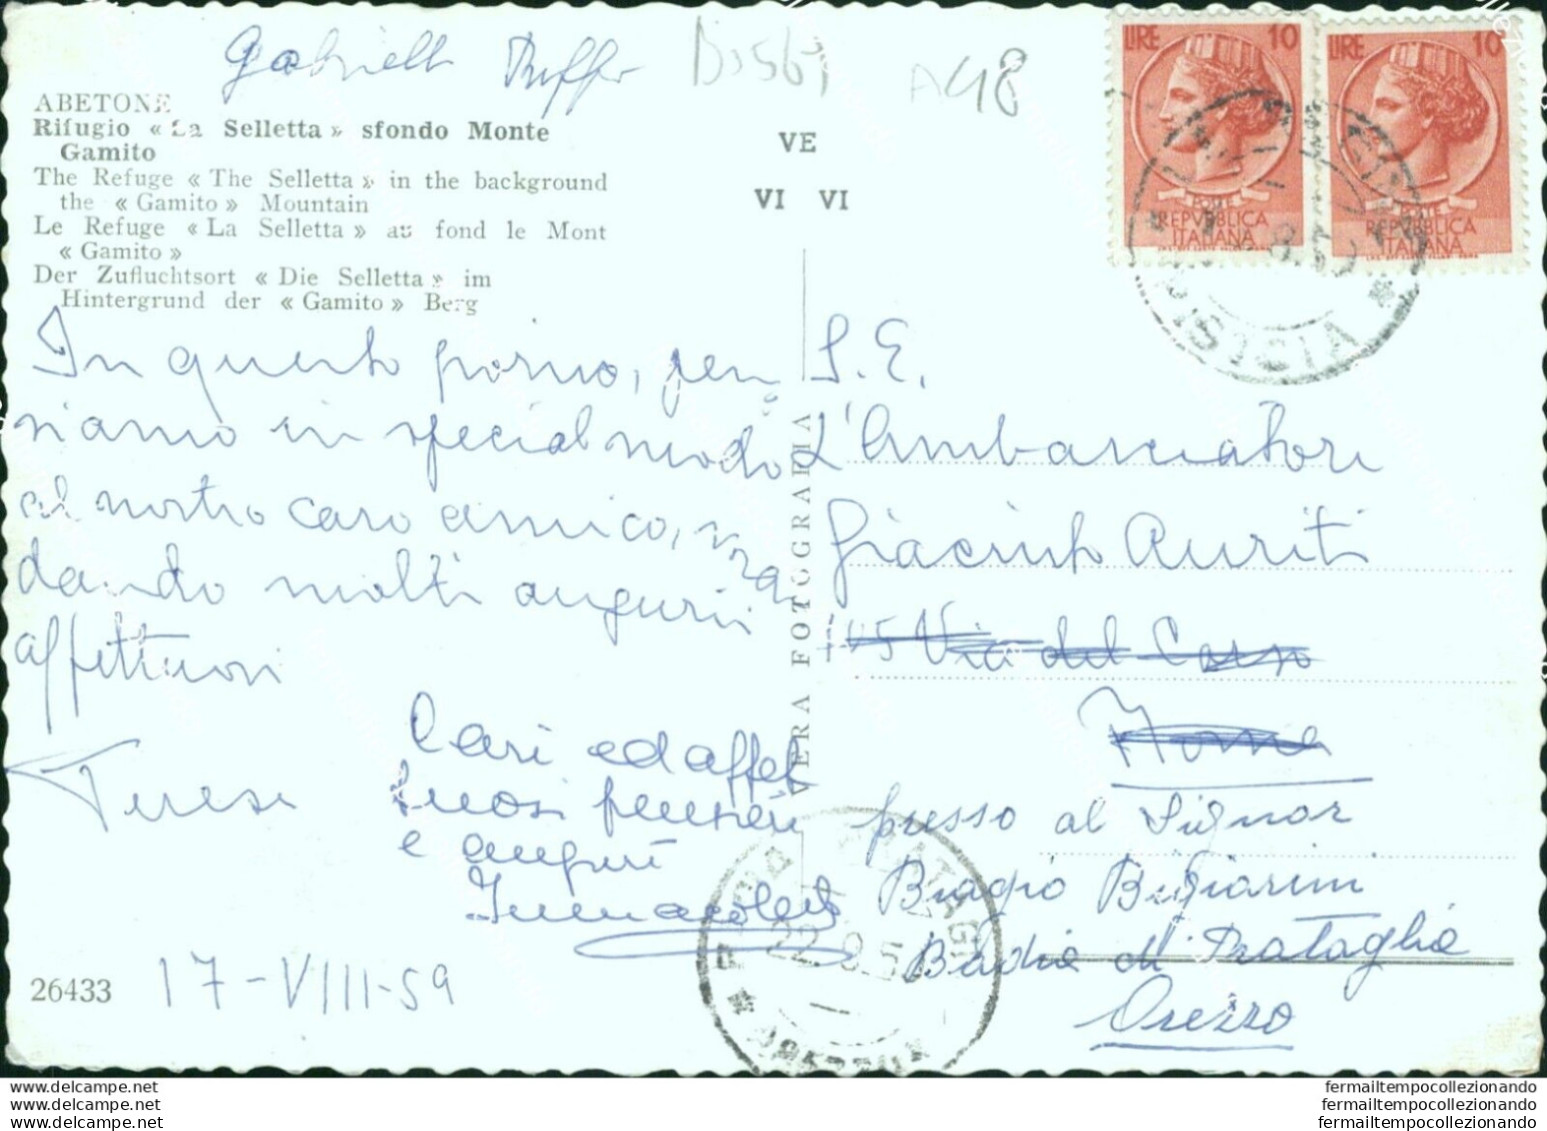 Gabriella Buffo
A48
ABETONE
Rifugio « La Selletta » sfondo Monte
Gamito
The Refuge « The Selletta » in the background
the « Gamito » Mountain
Le Refuge « La Selletta » au fond le Mont
« Gamito »
Der Zufluchtsort « Die Selletta » im
Hintergrund der « Gamito » Berg
VE
VI VI
LIRE 10
REPVBBLICA
ITALIANA
LIRE 10
REPVBBLICA
ITALIANA
In questo giorno, pen
siamo in special modo
al nostro caro amico,
dando molti auguri
affettuosi
Teresa
Cari ed affet
tuosi pensieri
e auguri
Immacolata
26433
17-VIII-59
VERA FOTOGRAFIA
S. E.
L'Ambasciatore
Giacinto Auriti
145 Via del Corso
Roma
presso al Signor
Biagio Bigiarini
Badia di Prataglia
Arezzo
delcampe.net
delcampe.net
delcampe.net
fermailtempocollezionando
fermailtempocollezionando
fermailtempocollezionando